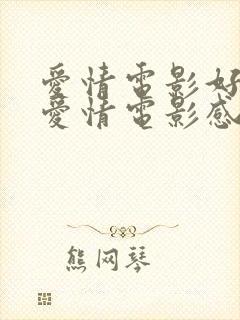 愛情電影好
愛情電影感
熊网琴